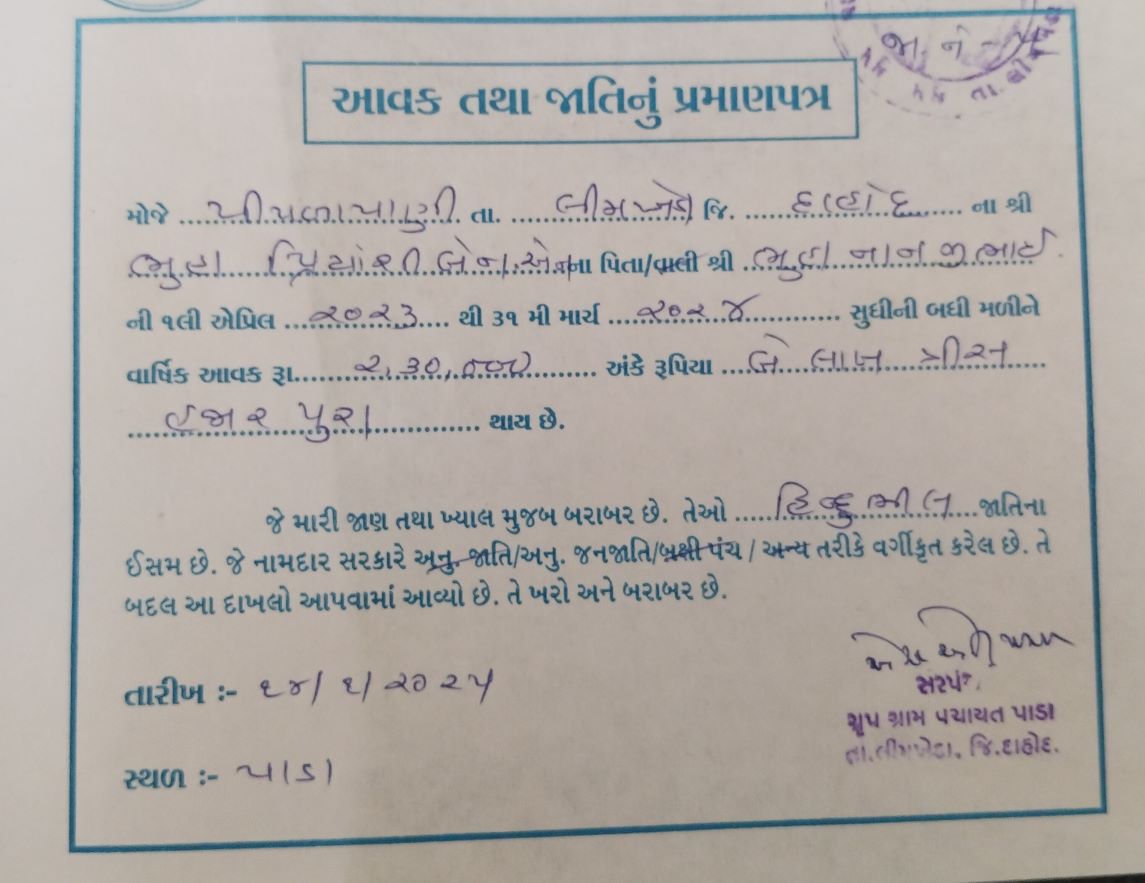 જા. નં. - ૫
તા. લીમખેડા
આવક તથા જાતિનું પ્રમાણપત્ર
મોજે ...પીપળાપાણી. તા. ...લીમખેડા જિ. ...દાહોદ... ના શ્રી
ભુહા પ્રિયાંશી બેન.એન.ના પિતા/વાલી શ્રી ..ભુહા નાનજીભાઈ.
ની ૧લી એપ્રિલ ...૨૦૨૩... થી ૩૧ મી માર્ચ ...૨૦૨૪... સુધીની બધી મળીને
વાર્ષિક આવક રૂા...૨,૩૦,૦૦૦... અંકે રૂપિયા ...બે લાખ ત્રીસ...
...હજાર પુરા... થાય છે.
જે મારી જાણ તથા ખ્યાલ મુજબ બરાબર છે. તેઓ ...હિન્દુ ભીલ...જાતિના
ઈસમ છે. જે નામદાર સરકારે અનુ. જાતિ/અનુ. જનજાતિ/બક્ષી પંચ / અન્ય તરીકે વર્ગીકૃત કરેલ છે. તે
બદલ આ દાખલો આપવામાં આવ્યો છે. તે ખરો અને બરાબર છે.
તારીખ :- ૧૪/૬/૨૦૨૫
સરપંચ
ગ્રુપ ગ્રામ પંચાયત પાડા
તા.લીમખેડા, જિ.દાહોદ.
સ્થળ :- પાડા